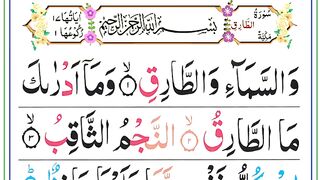 سُوْرَةُ الطَّارِقِ مَكِّيَّةٌ
بِسْمِ اللّٰهِ الرَّحْمٰنِ الرَّحِيْمِ
اٰيَاتُهَا ١٧ رُكُوْعُهَا ١
وَالسَّمَآءِ وَالطَّارِقِ ۙ﴿١﴾ وَمَآ اَدْرٰىكَ
مَا الطَّارِقُ ۙ﴿٢﴾ النَّجْمُ الثَّاقِبُ ۙ﴿٣﴾